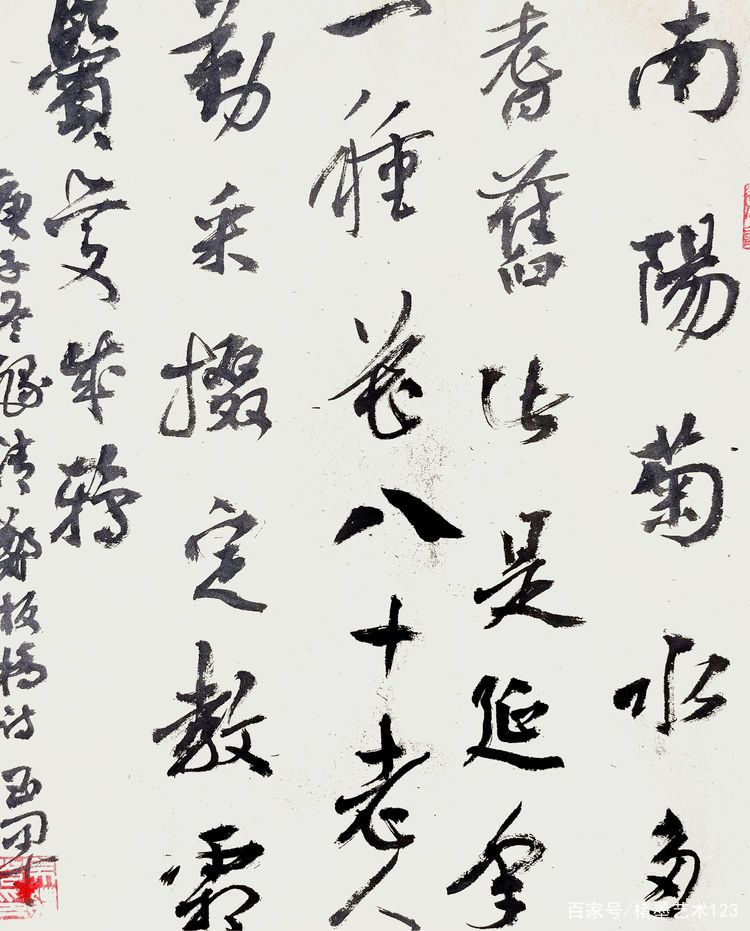 南陽菊水多
耆舊此是延年
一種花八十老人
勤采掇定教霜
鬢變成鴉
庚子冬錄清鄭板橋詩
百家号/楮墨艺术123